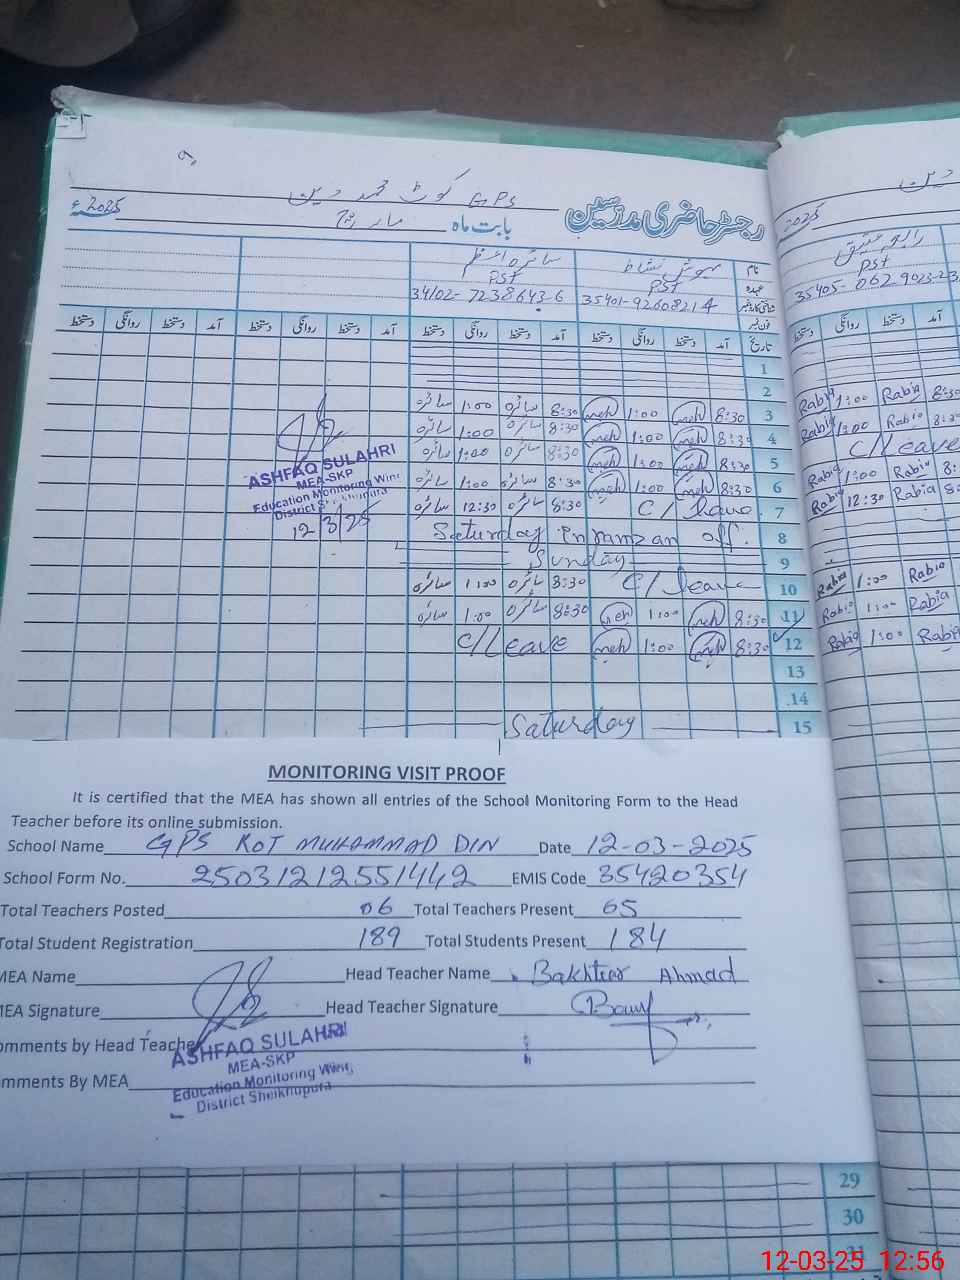 GPS کوٹ محمد دین
رجسٹر حاضری مدرسین
بابت ماہ مارچ 2025ء
نام مہوش نشاط سائرہ اعظم
عہدہ PST PST
شناختی کارڈ نمبر 35401-92608214 34102-7238643-6
فون نمبر
تاریخ آمد دستخط روانگی دستخط آمد دستخط روانگی دستخط آمد دستخط روانگی دستخط آمد دستخط روانگی دستخط
1
2
3 8:30 meh 1:00 meh 8:30 سائرہ 1:00 سائرہ
4 8:30 meh 1:00 meh 8:30 سائرہ 1:00 سائرہ
5 8:30 meh 1:00 meh 8:30 سائرہ 1:00 سائرہ
6 8:30 meh 1:00 meh 8:30 سائرہ 1:00 سائرہ
7 C/Leave 8:30 سائرہ 12:30 سائرہ
8 Saturday in ramzan off.
9 Sunday
10 C/leave 8:30 سائرہ 1:00 سائرہ
11 8:30 meh 1:00 meh 8:30 سائرہ 1:00 سائرہ
12 8:30 meh 1:00 meh C/Leave
13
14
15 Saturday
ASHFAQ SULAHRI
MEA-SKP
Education Monitoring Wing
District Sheikhupura
12/3/25
دین
2025
رابعہ عتیق
PST
35405-0629023-2
آمد دستخط روانگی دستخط
8:30 Rabia 1:00 Rabia
8:30 Rabia 1:00 Rabia
C/Leave
8: Rabia 1:00 Rabia
8: Rabia 12:30 Rabia
Rabia 1:00 Rabia
Rabia 1:00 Rabia
Rabia 1:00 Rabia
MONITORING VISIT PROOF
It is certified that the MEA has shown all entries of the School Monitoring Form to the Head
Teacher before its online submission.
School Name GPS KOT MUHAMMAD DIN Date 12-03-2025
School Form No. 25031212551442 EMIS Code 35420354
Total Teachers Posted 06 Total Teachers Present 05
Total Student Registration 189 Total Students Present 184
MEA Name Head Teacher Name Bakhtier Ahmad
MEA Signature Head Teacher Signature
omments by Head Teacher
mments By MEA
ASHFAQ SULAHRI
MEA-SKP
Education Monitoring Wing
District Sheikhupura
29
30
31
12-03-25 12:56